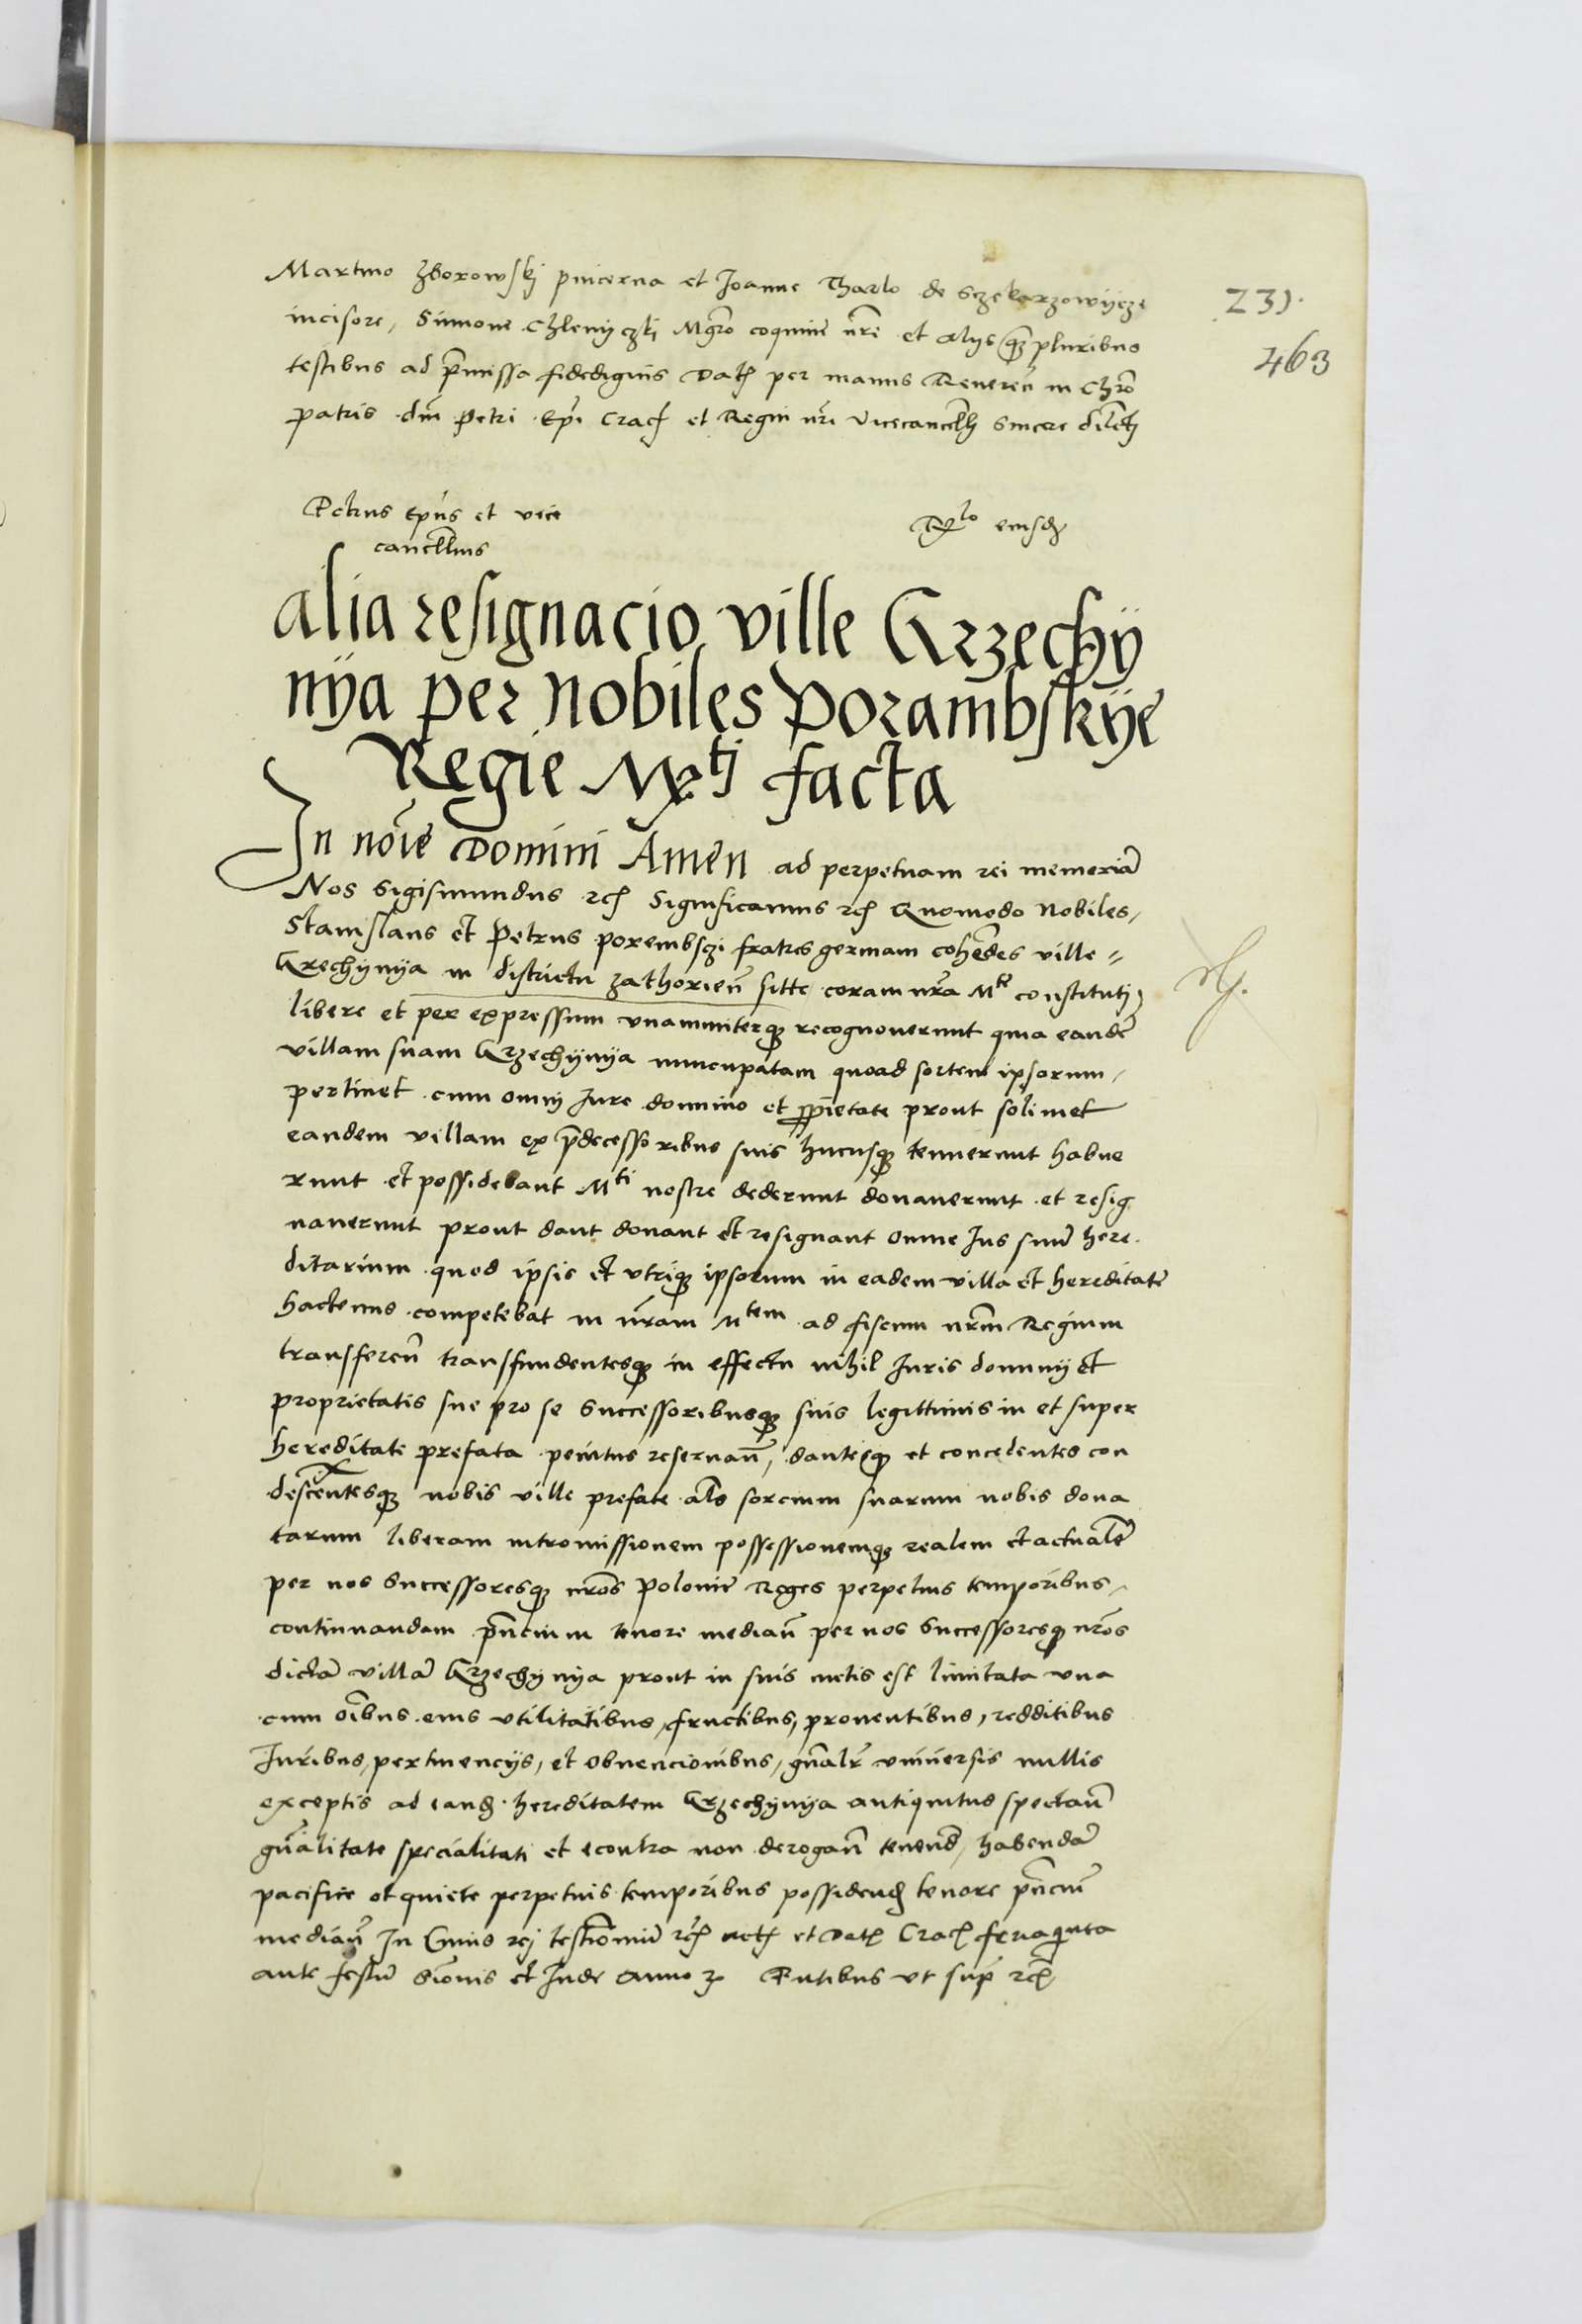 Martino Zborowskj pincerna et Joanne Tharlo de Sczekarzowÿcze
231.
incisore, Simone Chlenyczkj Mgro coquine nre et alijs qz pluribus
463
testibus ad pmissa fidedignis Dat per manus Reveren in Chro
patris dni Petri Epi Crac et Regni nri Vicecancellrii sincere dilecti
Petrus epus et vice
cancellrius
Rlo eiusd
alia resignacio ville Grzechÿ
nÿa per nobiles Porambskÿe
Regie Mtj facta
In noie Domini Amen ad perpetuam rei memoria
Nos Sigismundus etc Significamus etc Quomodo Nobiles,
Stanislaus et Petrus porembsczi fratres germani coheredes ville
Grechynÿa in districtu zathorien sitte coram nra Mte constitutj
libere et per expressum unanimiterqz recognoverunt quia eande
villam suam Grzechÿnÿa nuncupatam quoad sortem ipsorum,
pertinet cum omnj Jure dominio et pprietate prout solimet
eandem villam ex pdecessoribus suis hucusqz tenuerunt habue
runt et possidebant Mti nostre dederunt donaverunt et resig
naverunt prout dant donant et resignant omne Jus suum here
ditarium quod ipsis et utriqz ipsorum in eadem villa et hereditate
hactenus competebat in nram Mtem ad fiscum nrm Regium
transferen transfundentesqz in effectu nihil Juris dominij et
proprietatis sue pro se successoribusqz suis legittimis in et super
hereditate prefata penitus reservan, dantesqz et concedentes con
descentesqz nobis ville prefate als sorcium suarum nobis dona
tarum liberam intromissionem possessionemqz realem et actuale
per nos Successoresqz nros Polonie Reges perpetuis temporibus,
continuandam pncium tenore median per nos Successoresqz nros
dicta villa Grzechÿnÿa prout in suis metis est limitata una
cum oibus eius utilitatibus, fructibus, proventibus, redditibus
Juribus, pertinencÿs, et obvencionibus, gnalr universis nullis
exceptis ad eand hereditatem Grzechÿnÿa antiquitus spectan
gnalitate specialitati et econtra non derogan tenend, habenda
pacifice et quiete perpetuis temporibus possidend tenore pncium
median In Cuius rej testimoniu etc Act et Dat Crac feria quinta
ante festu Simonis et Jude anno Pntibus ut sup etc